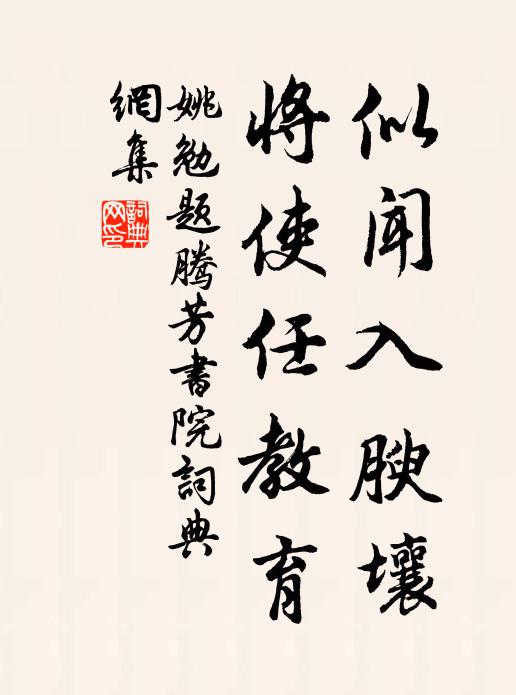 似闻入腴壤
将使任教育
姚勉题腾芳书院词典
网集
词典网印